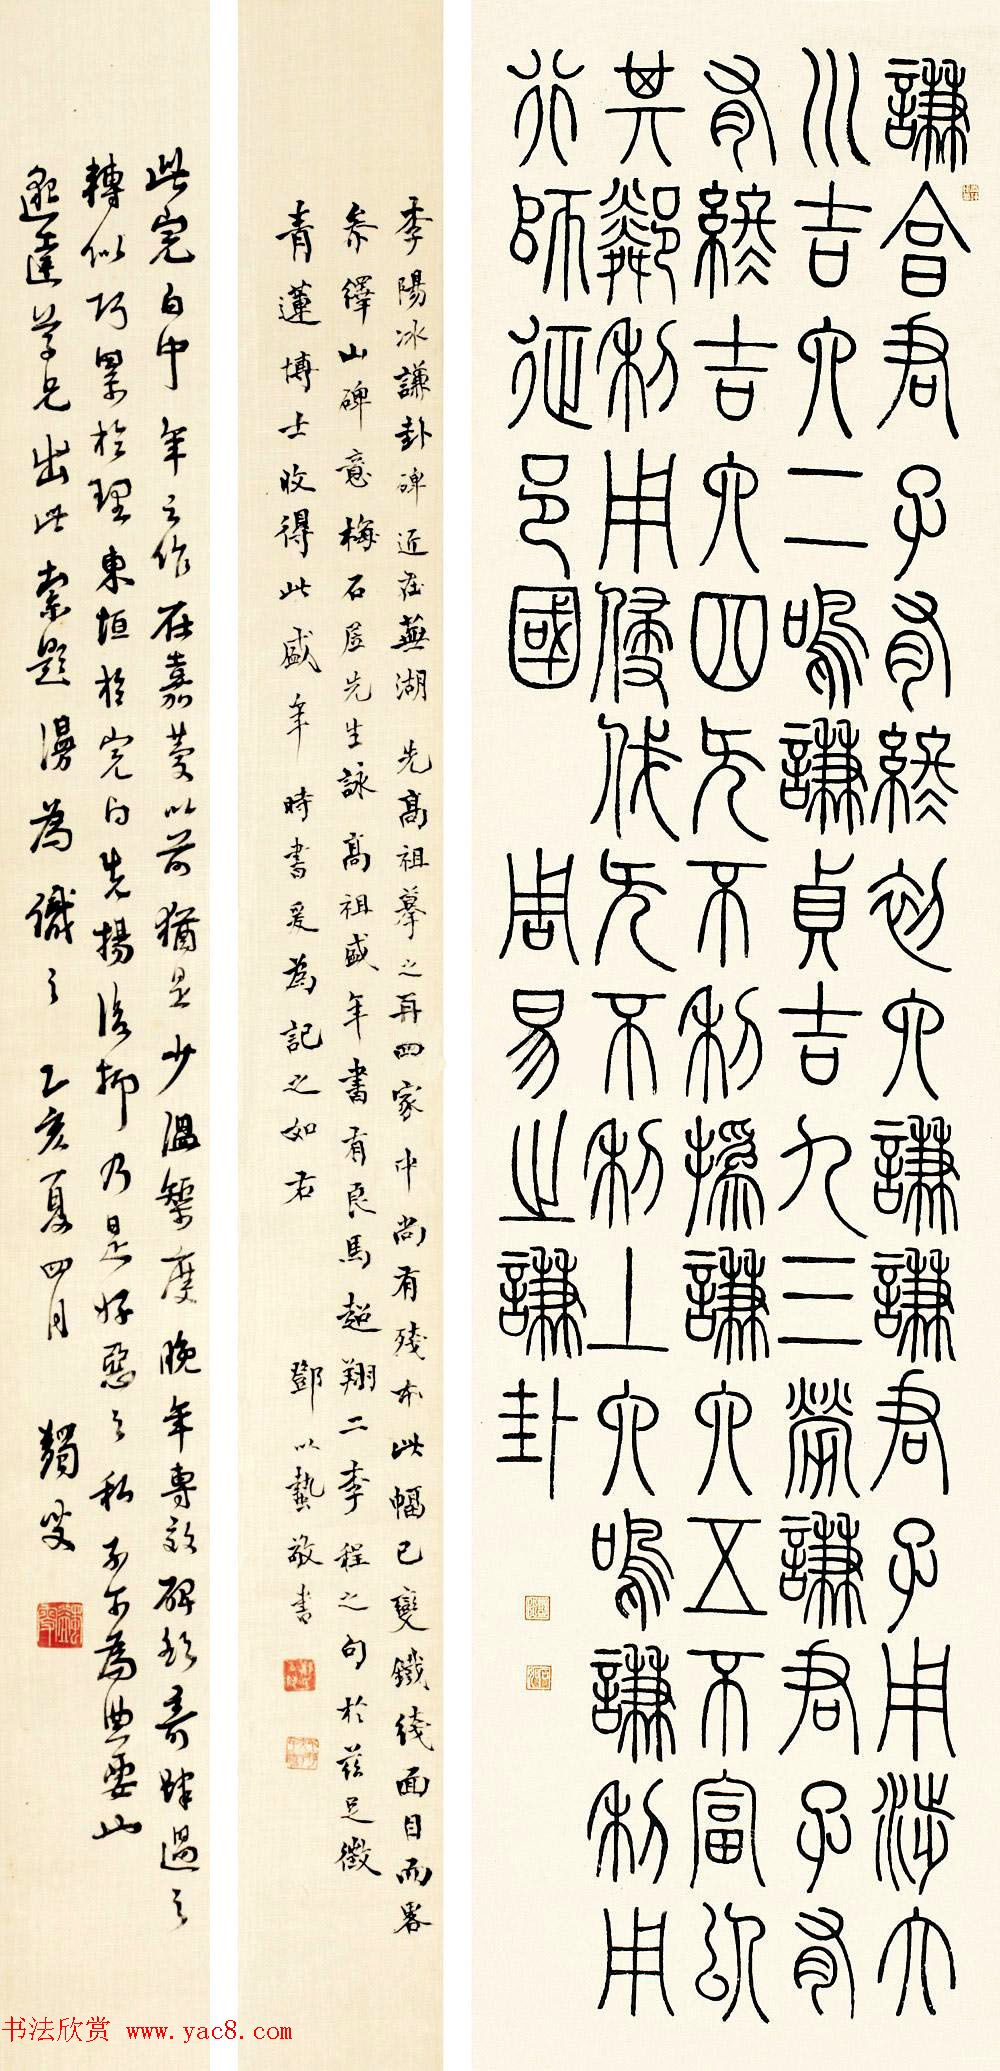 謙亨君子有終初六謙謙君子用涉大
川吉六二鳴謙貞吉九三勞謙君子有
有終吉六四无不利撝謙六五不富以
其鄰利用侵伐无不利上六鳴謙利用
行師征邑國 周易之謙卦
李陽冰謙卦碑近在蕪湖先高祖摹之再四家中尚有殘本此幅已變鐵綫面目而畧
參繹山碑意梅石居先生詠高祖盛年書有良馬超翔二李程之句於茲足徵
青蓮博士收得此盛年時書爰為記之如右 鄧以蟄敬書
此完白中年之作在嘉慶以前猶是少溫榘度晚年專效碑額奇肆過之
轉似巧累於理東垣於完白先揚後抑乃是好惡之私不可為典要也
達學兄出此索題漫為識之 乙亥夏四月 蠲叟
书法欣赏 www.yac8.com